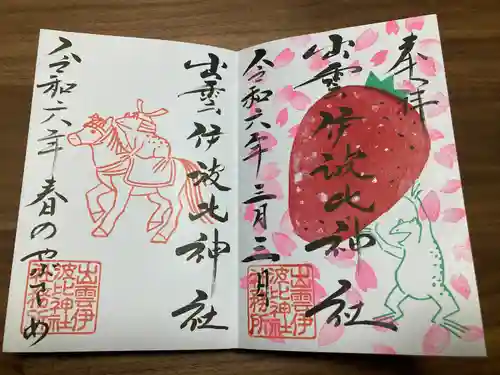 奉拝
出雲伊波比神社
令和六年三月三日
出雲伊
波比神社
社務所
出雲伊波比神社
令和六年 春のやぶさめ
出雲伊
波比神社
社務所